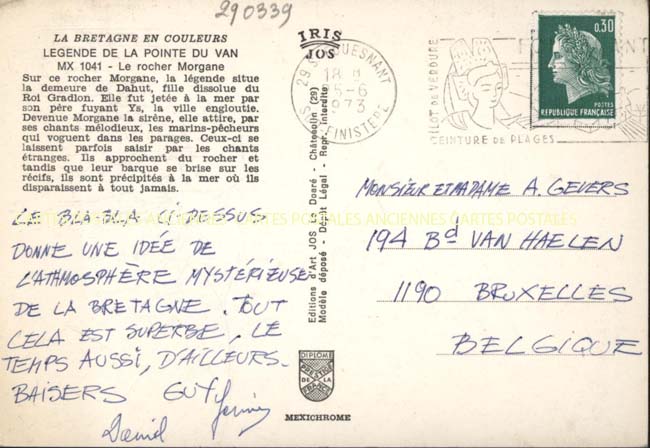 290339
LA BRETAGNE EN COULEURS
LEGENDE DE LA POINTE DU VAN
MX 1041 - Le rocher Morgane
Sur ce rocher Morgane, la légende situe
la demeure de Dahut, fille dissolue du
Roi Gradlon. Elle fut jetée à la mer par
son père fuyant Ys, la ville engloutie.
Devenue Morgane la sirène, elle attire, par
ses chants mélodieux, les marins-pêcheurs
qui voguent dans les parages. Ceux-ci se
laissent parfois saisir par les chants
étranges. Ils approchent du rocher et
tandis que leur barque se brise sur les
récifs, ils sont précipités à la mer où ils
disparaissent à tout jamais.
LE BLA-BLA CI-DESSUS
DONNE UNE IDÉE DE
L'ATHMOSPHÈRE MYSTÉRIEUSE
DE LA BRETAGNE. TOUT
CELA EST SUPERBE, LE
TEMPS AUSSI, D'AILLEURS.
BAISERS GUY
David
IRIS
JOS
Editions d'Art JOS Le Doaré - Châteaulin (29)
Modèle déposé - Dépôt Légal - Repr. interdite
DIPLOME
PRESTIGE
DE LA
FRANCE
MEXICHROME
18 H
15-6
1973
FINISTERE
ILOT DE VERDURE
CEINTURE DE PLAGES
0,30
POSTES
REPUBLIQUE FRANÇAISE
MONSIEUR ET MADAME A. GEVERS
194 Bd VAN HAELEN
1190 BRUXELLES
BELGIQUE
CARTES POSTALES ANCIENNES CARTES POSTALES